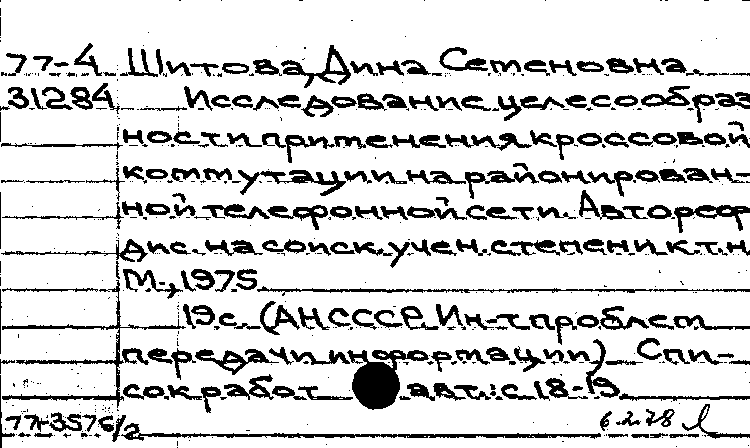 77-4 Шитова, Дина Семеновна.
31284 Исследование целесообраз
ности применения кроссовой
коммутации на районирован-
ной телефонной сети. Автореф
дис. на соиск. учен. степени к.т.н
М., 1975.
19с. (АН СССР. Ин-т проблем
передачи информации) Спи-
сок работ авт.: с. 18-19.
77-3576/2 6.2.78